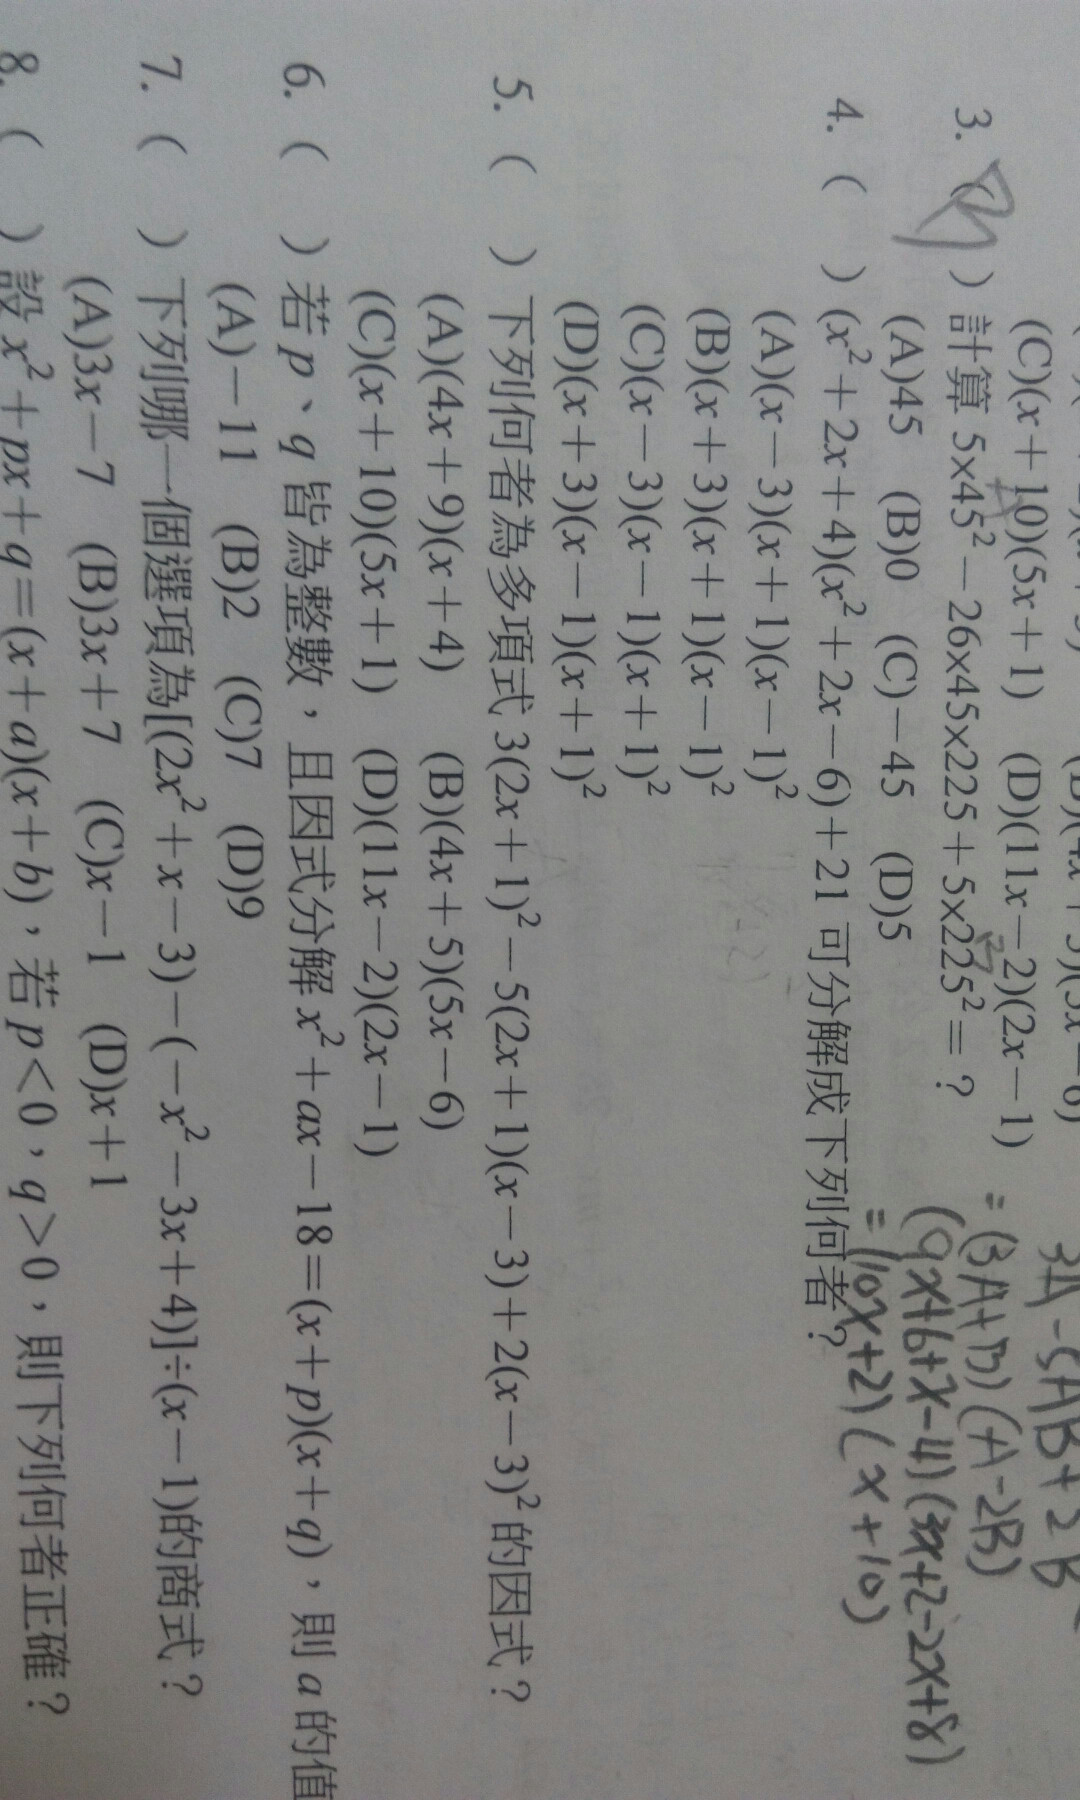 (C)(x+10)(5x+1) (D)(11x-2)(2x-1)
3. ( ) 計算 5×45²-26×45×225+5×225²=?
(A)45 (B)0 (C)-45 (D)5
4. ( ) (x²+2x+4)(x²+2x-6)+21 可分解成下列何者?
(A)(x-3)(x+1)(x-1)²
(B)(x+3)(x+1)(x-1)²
(C)(x-3)(x-1)(x+1)²
(D)(x+3)(x-1)(x+1)²
5. ( ) 下列何者為多項式 3(2x+1)²-5(2x+1)(x-3)+2(x-3)² 的因式?
(A)(4x+9)(x+4) (B)(4x+5)(5x-6)
(C)(x+10)(5x+1) (D)(11x-2)(2x-1)
6. ( ) 若 p、q 皆為整數,且因式分解 x²+ax-18=(x+p)(x+q),則 a 的值
(A)-11 (B)2 (C)7 (D)9
7. ( ) 下列哪一個選項為[(2x²+x-3)-(-x²-3x+4)]÷(x-1)的商式?
(A)3x-7 (B)3x+7 (C)x-1 (D)x+1
8. ( ) 設 x²+px+q=(x+a)(x+b),若 p<0,q>0,則下列何者正確?
3A-5AB+2B
=(3A+B)(A-2B)
(9x+6+x-4)(3x+2-2x+8)
=(10x+2)(x+10)